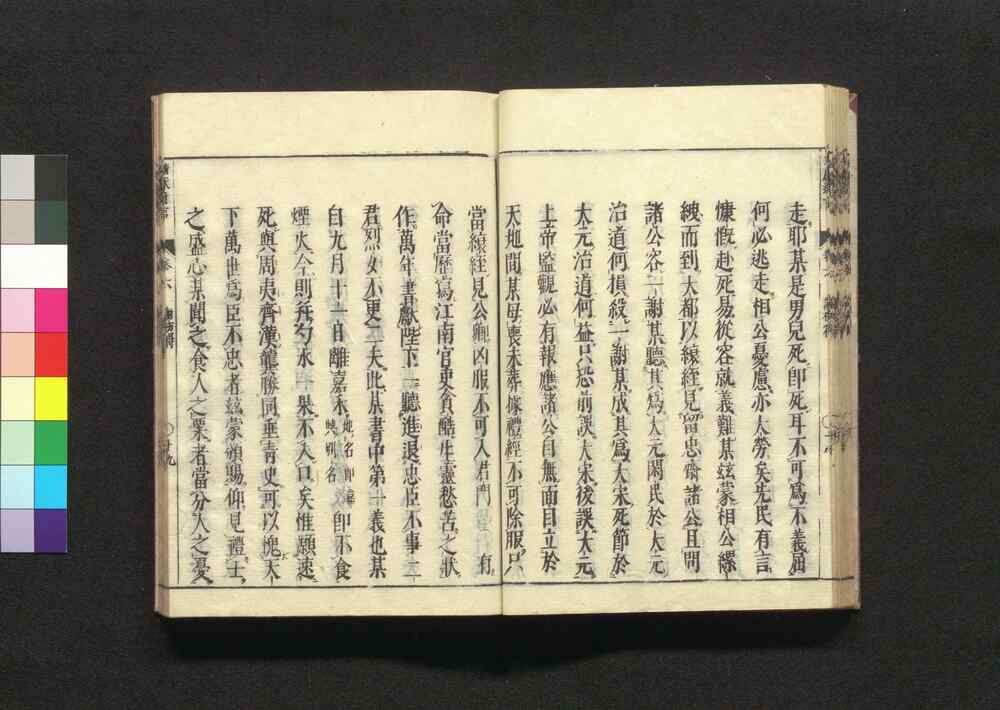 走耶某是男兒死即死耳不可爲不義屈
何必逃走相公憂慮亦大勞矣先民有言
慷慨赴死易從容就義難某玆蒙相公縲
絏而到大都以縗絰見留忠齋諸公且問
諸公容一謝某聽其爲大元閑民於大元
治道何損殺一謝某成其爲大宋死節於
大元治道何益只恐前誤大宋後誤大元
上帝監觀必有報應諸公自無面目立於
天地間某母喪未葬據禮經不可除服只
當縗絰見公卿凶服不可入君門 有
命當歷寫江南官吏貪酷生靈愁苦之狀
作萬年書獻陛下一聽進退忠臣不事二
君烈女不更二夫此某書中第一義也某
自九月十一日離嘉禾 地名即 即不食
映州名
煙火今則 勺水 果不入口矣惟願速
死與周夷齊漢龔勝同垂青史可以愧天
下萬世爲臣不忠者玆蒙頒賜仰見禮士
之盛心某聞之食人之粟者當分人之憂
卷六
十九